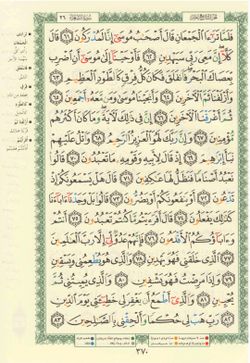 فَلَمَّا تَرَٰٓءَا ٱلْجَمْعَانِ قَالَ أَصْحَٰبُ مُوسَىٰٓ إِنَّا لَمُدْرَكُونَ ﴿٦١﴾ قَالَ
كَلَّآ إِنَّ مَعِىَ رَبِّى سَيَهْدِينِ ﴿٦٢﴾ فَأَوْحَيْنَآ إِلَىٰ مُوسَىٰٓ أَنِ ٱضْرِب
بِّعَصَاكَ ٱلْبَحْرَ فَٱنفَلَقَ فَكَانَ كُلُّ فِرْقٍ كَٱلطَّوْدِ ٱلْعَظِيمِ ﴿٦٣﴾
وَأَزْلَفْنَا ثَمَّ ٱلْـَٔاخَرِينَ ﴿٦٤﴾ وَأَنجَيْنَا مُوسَىٰ وَمَن مَّعَهُۥٓ أَجْمَعِينَ ﴿٦٥﴾
ثُمَّ أَغْرَقْنَا ٱلْـَٔاخَرِينَ ﴿٦٦﴾ إِنَّ فِى ذَٰلِكَ لَـَٔايَةً وَمَا كَانَ أَكْثَرُهُم
مُّؤْمِنِينَ ﴿٦٧﴾ وَإِنَّ رَبَّكَ لَهُوَ ٱلْعَزِيزُ ٱلرَّحِيمُ ﴿٦٨﴾ وَٱتْلُ عَلَيْهِمْ
نَبَأَ إِبْرَٰهِيمَ ﴿٦٩﴾ إِذْ قَالَ لِأَبِيهِ وَقَوْمِهِۦ مَا تَعْبُدُونَ ﴿٧٠﴾ قَالُوا۟
نَعْبُدُ أَصْنَامًا فَنَظَلُّ لَهَا عَٰكِفِينَ ﴿٧١﴾ قَالَ هَلْ يَسْمَعُونَكُمْ إِذْ
تَدْعُونَ ﴿٧٢﴾ أَوْ يَنفَعُونَكُمْ أَوْ يَضُرُّونَ ﴿٧٣﴾ قَالُوا۟ بَلْ وَجَدْنَآ ءَابَآءَنَا
كَذَٰلِكَ يَفْعَلُونَ ﴿٧٤﴾ قَالَ أَفَرَءَيْتُم مَّا كُنتُمْ تَعْبُدُونَ ﴿٧٥﴾ أَنتُمْ
وَءَابَآؤُكُمُ ٱلْأَقْدَمُونَ ﴿٧٦﴾ فَإِنَّهُمْ عَدُوٌّ لِّىٓ إِلَّا رَبَّ ٱلْعَٰلَمِينَ
﴿٧٧﴾ ٱلَّذِى خَلَقَنِى فَهُوَ يَهْدِينِ ﴿٧٨﴾ وَٱلَّذِى هُوَ يُطْعِمُنِى وَيَسْقِينِ
﴿٧٩﴾ وَإِذَا مَرِضْتُ فَهُوَ يَشْفِينِ ﴿٨٠﴾ وَٱلَّذِى يُمِيتُنِى ثُمَّ
يُحْيِينِ ﴿٨١﴾ وَٱلَّذِىٓ أَطْمَعُ أَن يَغْفِرَ لِى خَطِيٓـَٔتِى يَوْمَ ٱلدِّينِ
﴿٨٢﴾ رَبِّ هَبْ لِى حُكْمًا وَأَلْحِقْنِى بِٱلصَّٰلِحِينَ ﴿٨٣﴾
٣٧٠